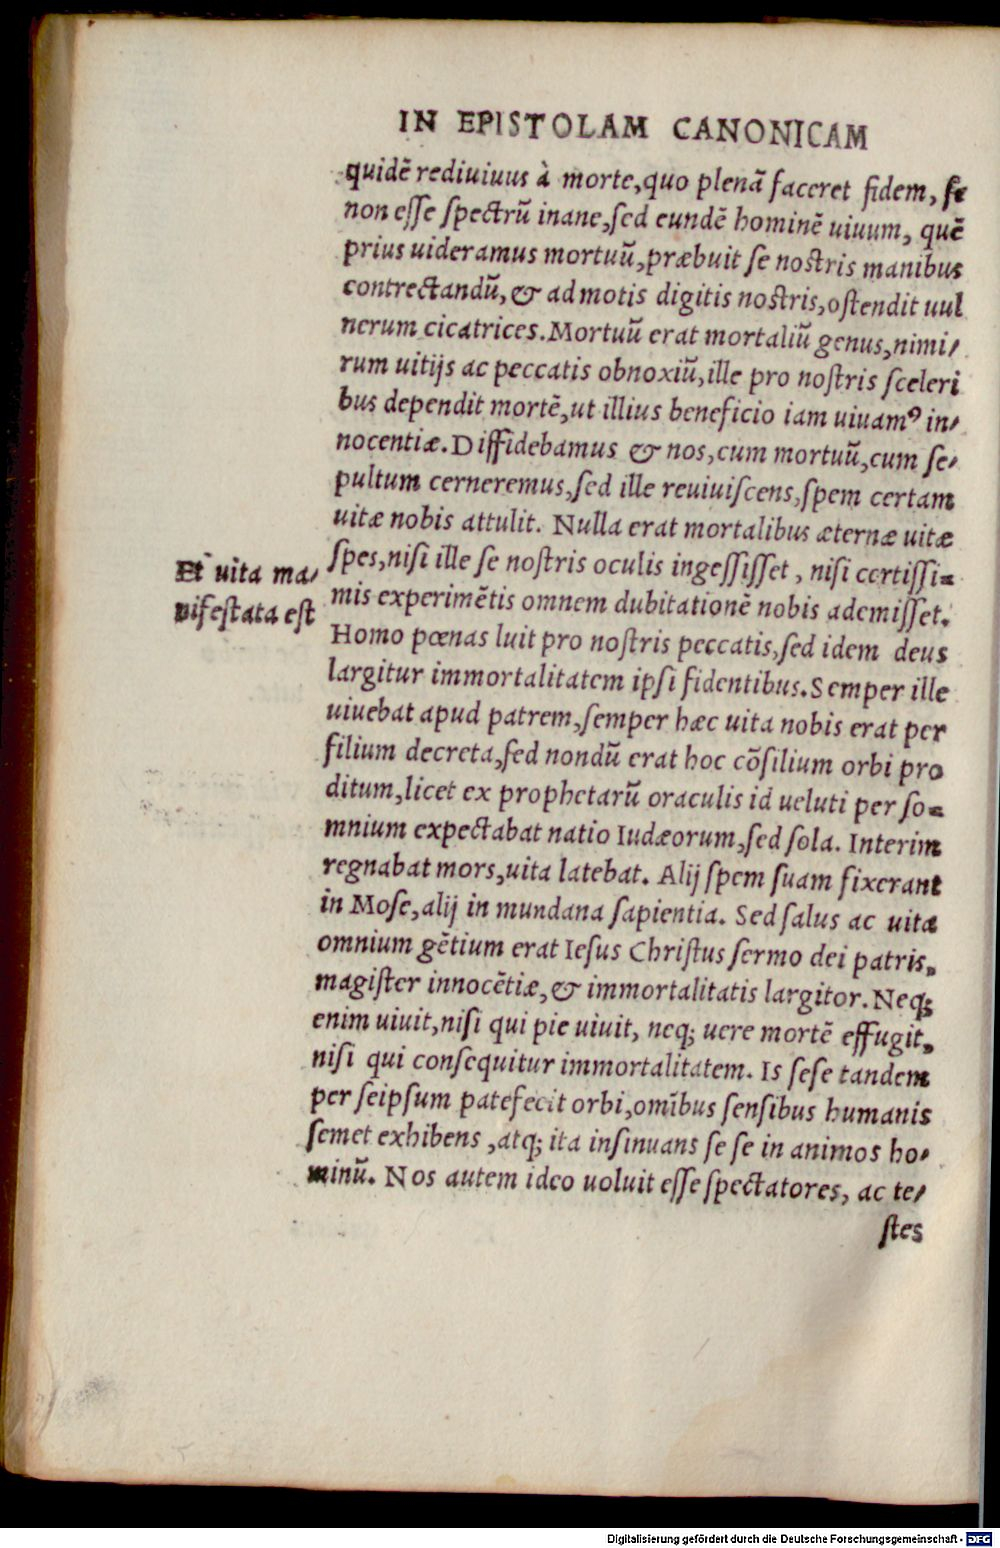 IN EPISTOLAM CANONICAM
quidē rediuiuus à morte,quo plenā faceret fidem, se
non esse spectrū inane,sed eundē hominē uiuum, quē
prius uideramus mortuū,præbuit se nostris manibus
contrectandū,& admotis digitis nostris,ostendit uul
nerum cicatrices.Mortuū erat mortaliū genus,nimi/
rum uitijs ac peccatis obnoxiū,ille pro nostris sceleri
bus dependit mortē,ut illius beneficio iam uiuamꝰ in/
nocentiæ.Diffidebamus & nos,cum mortuū,cum se/
pultum cerneremus,sed ille reuiuiscens,spem certam
uitæ nobis attulit. Nulla erat mortalibus æternæ uitæ
spes,nisi ille se nostris oculis ingessisset , nisi certissi=
Et uita ma/
nifestata est
mis experimētis omnem dubitationē nobis ademisset.
Homo pœnas luit pro nostris peccatis,sed idem deus
largitur immortalitatem ipsi fidentibus.Semper ille
uiuebat apud patrem,semper hæc uita nobis erat per
filium decreta,sed nondū erat hoc cōsilium orbi pro
ditum,licet ex prophetarū oraculis id ueluti per so=
mnium expectabat natio Iudæorum,sed sola. Interim
regnabat mors,uita latebat. Alij spem suam fixerant
in Mose,alij in mundana sapientia. Sed salus ac uita
omnium gētium erat Iesus Christus sermo dei patris,
magister innocētiæ,& immortalitatis largitor. Neq;
enim uiuit,nisi qui pie uiuit, neq; uere mortē effugit,
nisi qui consequitur immortalitatem. Is sese tandem
per seipsum patefecit orbi,omībus sensibus humanis
semet exhibens ,atq; ita insinuans se se in animos ho/
minū. Nos autem ideo uoluit esse spectatores, ac te/
stes
Digitalisierung gefördert durch die Deutsche Forschungsgemeinschaft - DFG